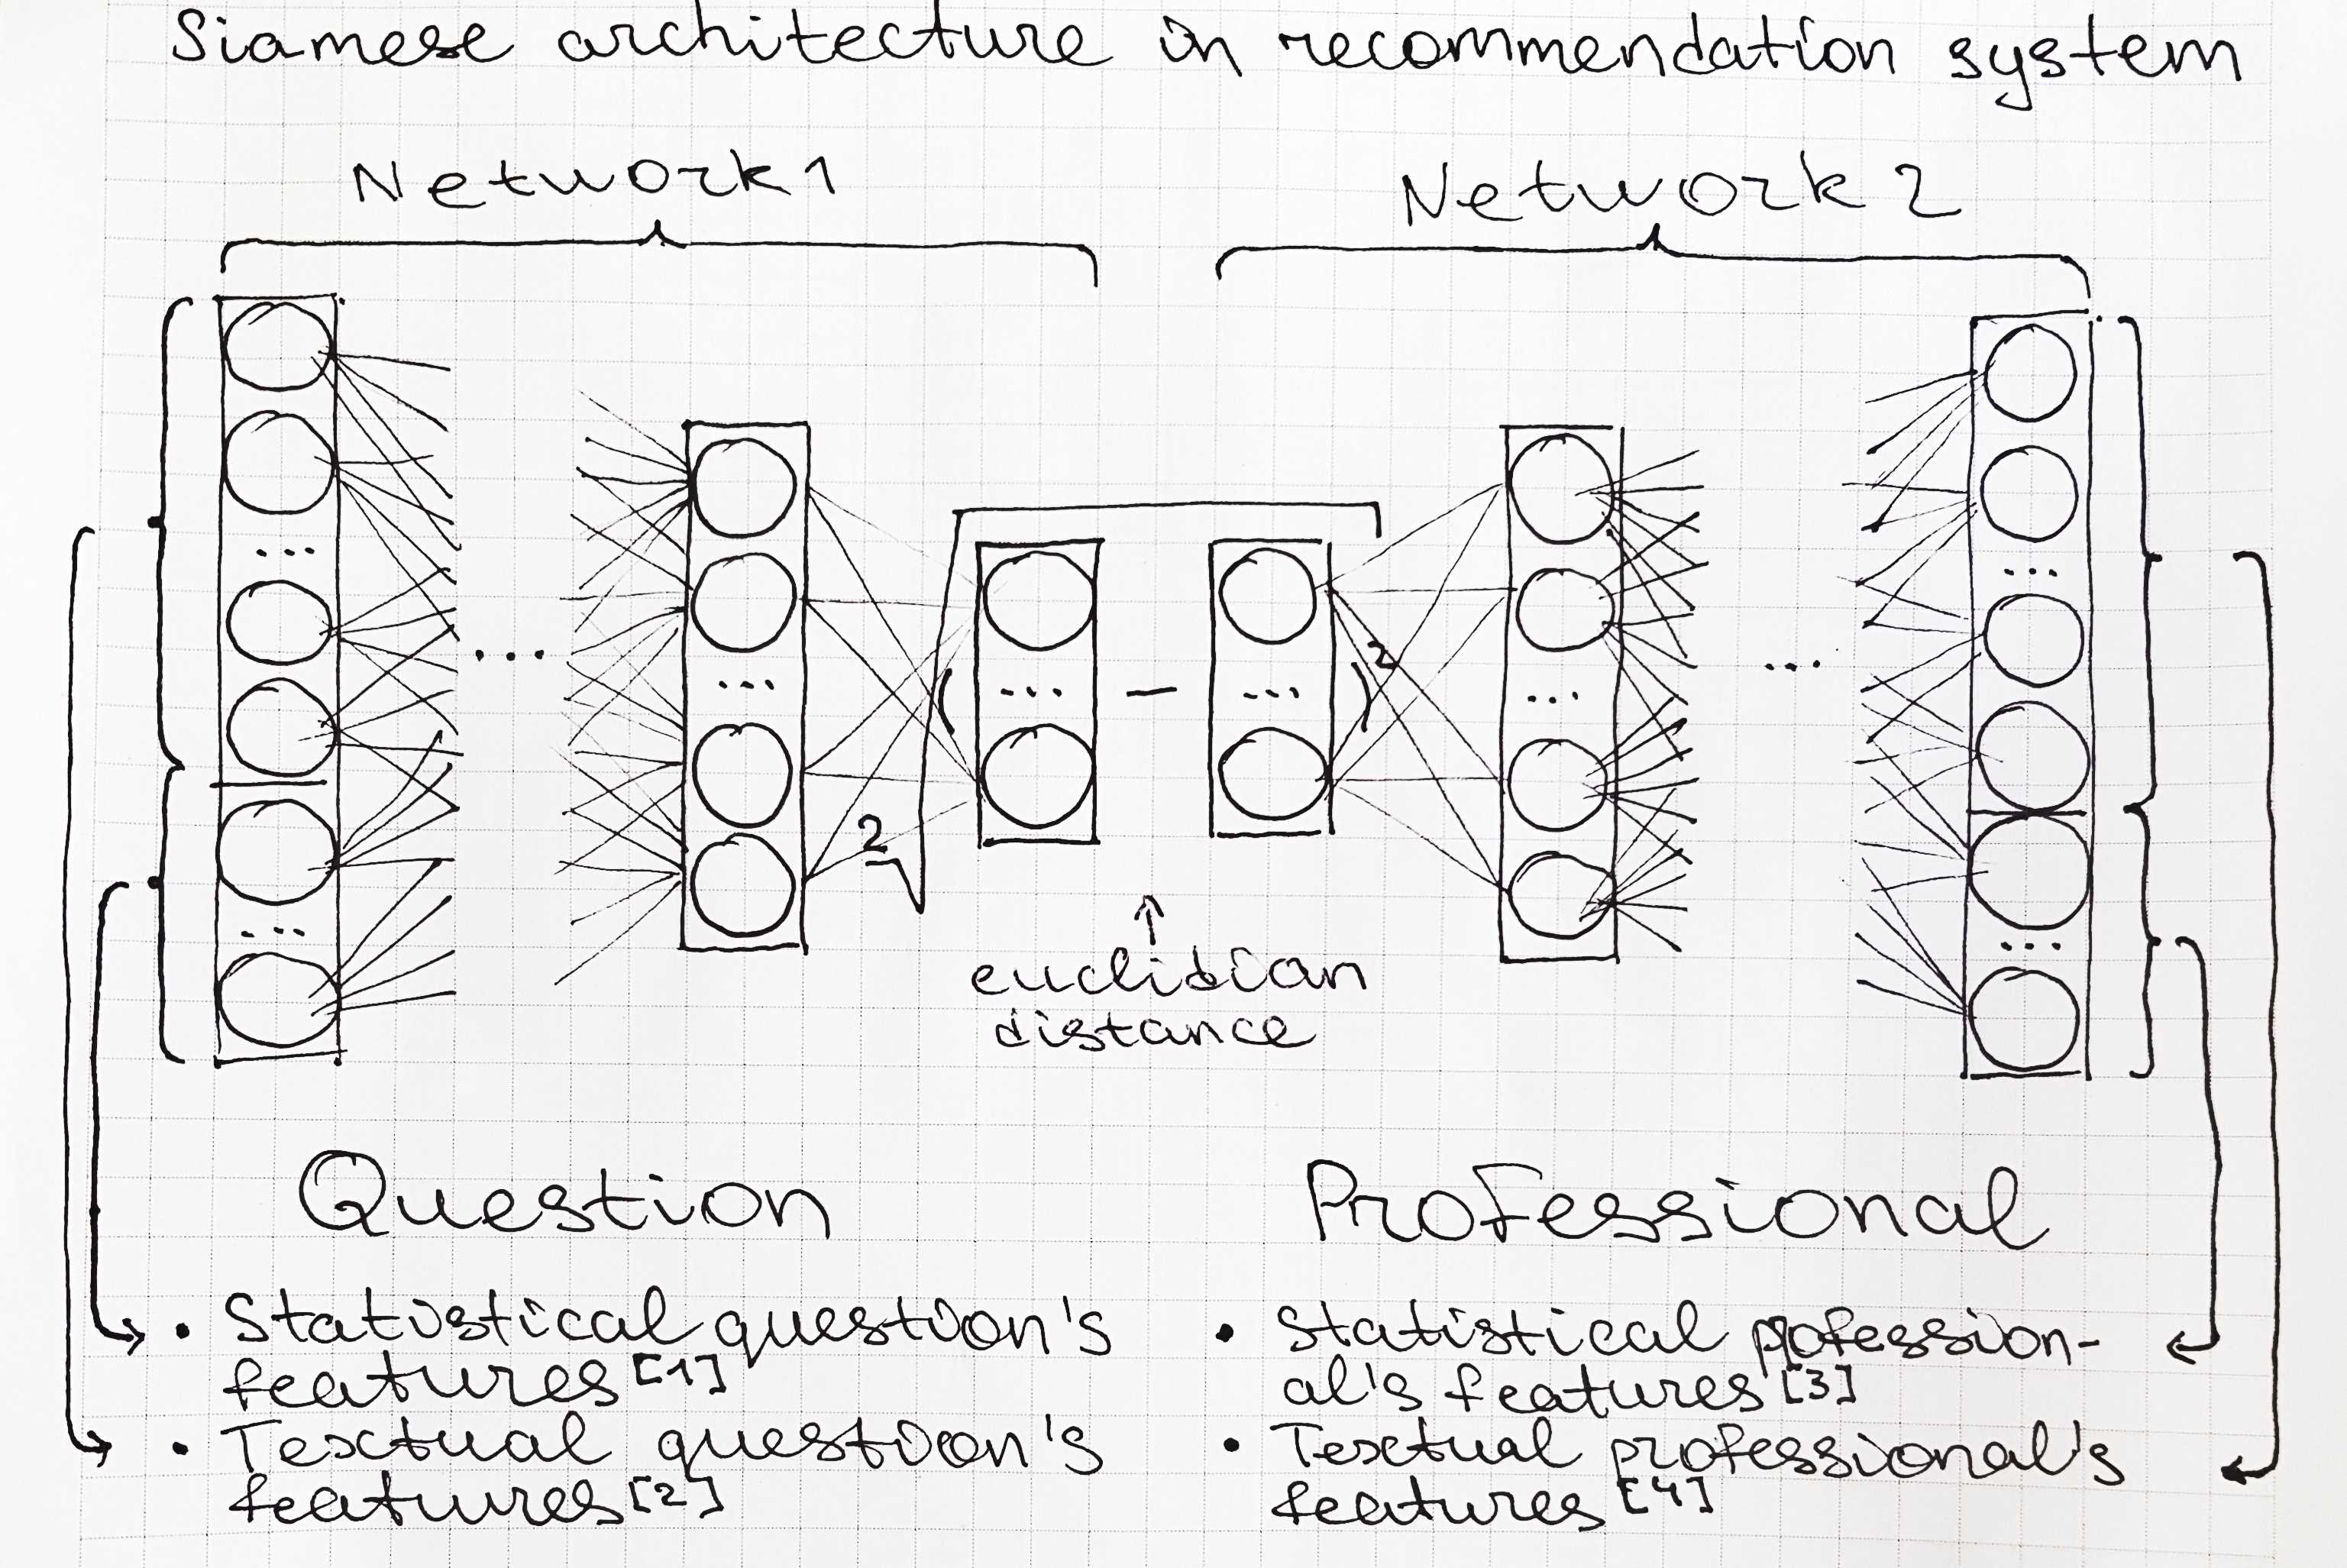 Siamese architecture in recommendation system
Network 1
Network 2
...
...
...
...
...
( ... − ... )²
...
...
2
euclidian
distance
Question
Professional
• Statistical question's
features [1]
• Textual question's
features [2]
• Statistical profession-
al's features [3]
• Textual professional's
features [4]